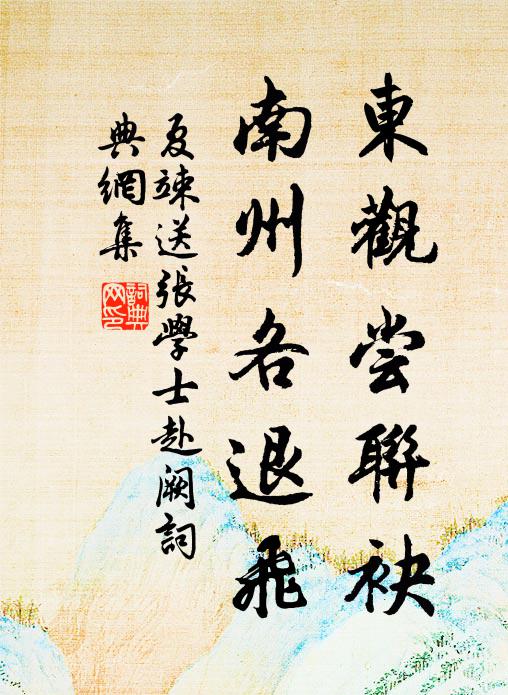 東觀嘗聯袂
南州各退飛
夏竦送張學士赴闕詞
典網集
詞典
网印